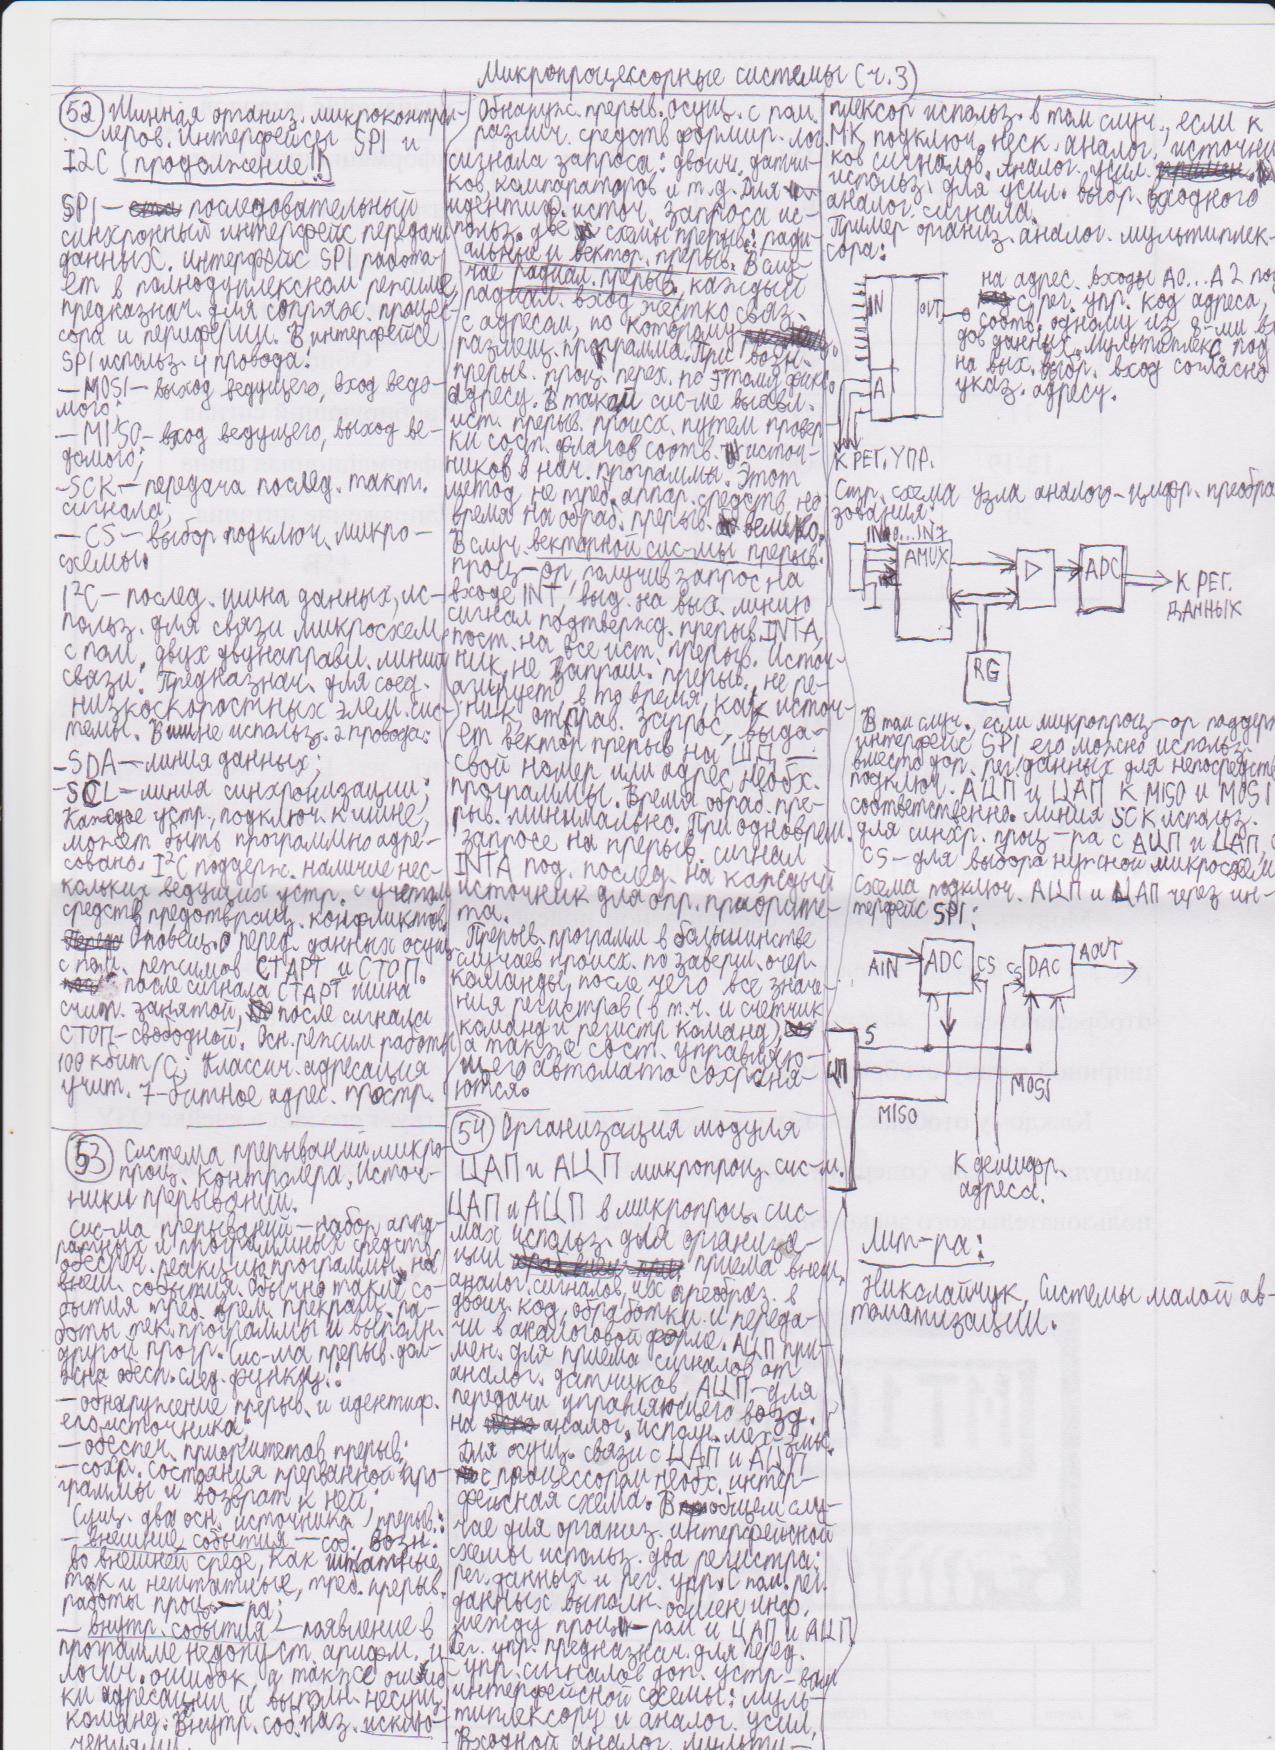 Микропроцессорные системы (ч.3)
52 Шинная организ. микроконтрол-
леров. Интерфейсы SPI и
I2C (продолжение!!)
SPI – последовательный
синхронный интерфейс передачи
данных. Интерфейс SPI работа-
ет в полнодуплексном режиме,
предназнач. для сопряж. процес-
сора и периферии. В интерфейсе
SPI использ. 4 провода:
– MOSI – выход ведущего, вход ведо-
мого;
– MISO – вход ведущего, выход ве-
домого;
– SCK – передача послед. такт.
сигнала;
– CS – выбор подключ. микро-
схемы.
I²C – послед. шина данных, ис-
польз. для связи микросхем
с пом. двух двунаправл. линий
связи. Предназнач. для соед.
низкоскоростных элем. сис-
темы. В шине использ. 2 провода:
– SDA – линия данных;
– SCL – линия синхронизации;
Каждое устр., подключ. к шине,
может быть программно адре-
совано. I²C поддерж. наличие нес-
кольких ведущих устр. с учетом
средств предотвращ. конфликтов.
Оповещ. о перед. данных осущ.
с пом. режимов СТАРТ и СТОП.
после сигнала СТАРТ шина
счит. занятой, после сигнала
СТОП – свободной. Осн. режим работы
100 кбит/с. Классич. адресация
учит. 7-битное адрес. простр.
53 Система прерываний микро-
проц. контролера, источ-
ники прерываний.
Сис-ма прерываний – набор аппа-
ратных и программных средств,
обеспеч. реакцию программы на
внеш. события. Обычно такие со-
бытия треб. врем. прекращ. ра-
боты тек. программы и выполн.
другой прогр. Сис-ма прерыв. дол-
жна обесп. след. функц.:
– обнаружение прерыв. и идентиф.
его источника;
– обеспеч. приоритетов прерыв.;
– сохр. состояния прерванной про-
граммы и возврат к ней;
Сущ. два осн. источника прерыв.:
– внешние события – соб. возн.
во внешней среде, как штатные,
так и нештатные, треб. прерыв.
работы проц-ра;
– внутр. события – появление в
программе недопуст. арифм. и
логич. ошибок, а также ошиб-
ки адресации и выполн. несущ.
команд. Внутр. соб. наз. исклю-
чениями.
Обнаруж. прерыв. осущ. с пом.
различ. средств формир. лог.
сигнала запроса: двоичн. датчи-
ков, компараторов и т.д. Для
идентиф. источ. запроса ис-
польз. две схемы прерыв.: ради-
альные и вектор. прерыв. В слу-
чае радиал. прерыв. каждый
радиал. вход жестко связ.
с адресом, по которому
размещ. программа. При возн.
прерыв. проц. перех. по этому фикс.
адресу. В такой сис-ме выявл.
ист. прерыв. происх. путем провер-
ки сост. флагов соотв. источ-
ников в нач. программы. Этот
метод не треб. аппар. средств, но
время на обраб. прерыв. велико.
В случ. векторной сис-мы прерыв.
проц-ор, получив запрос на
входе INT, выд. на вых. линию
сигнал подтвержд. прерыв. INTA,
пост. на все ист. прерыв. Источ-
ник, не запраш. прерыв., не ре-
агирует, в то время, как источ-
ник отправ. запрос, выда-
ет вектор прерыв на ШД –
свой номер или адрес необх.
программы. Время обраб. пре-
рыв. минимально. При одноврем.
запросе на прерыв. сигнал
INTA под. послед. на каждый
источник для опр. приорите-
та.
Прерыв. программ в большинстве
случаев происх. по заверш. очер.
команды, после чего все значе-
ния регистров (в т.ч. и счетчик
команд и регистр команд),
а также сост. управляю-
щего автомата сохраня-
ются.
54 Организация модуля
ЦАП и АЦП микропроц. сис-м.
ЦАП и АЦП в микропроц. сис-
мах использ. для организа-
ции приема внеш.
аналог. сигналов, их преобраз. в
двоич. код, обработки и переда-
чи в аналоговой форме. АЦП при-
мен. для приема сигналов от
аналог. датчиков, АЦП – для
передачи управляющего возд.
на аналог. исполн. мех-змы.
Для осущ. связи с ЦАП и АЦП
с процессором необх. интер-
фейсная схема. В общем слу-
чае для организ. интерфейсной
схемы использ. два регистра:
рег. данных и рег. упр. С пом. рег.
данных выполн. обмен инф.
между проц-ром и ЦАП и АЦП.
Рег. упр. предназнач. для перед.
упр. сигналов доп. устр-вам
интерфейсной схемы: муль-
типлексору и аналог. усил.
Входной аналог. мульти-
плексор использ. в том случ., если к
МК подключ. неск. аналог. источни-
ков сигналов. Аналог. усил.
использ. для усил. выбр. входного
аналог. сигнала.
Пример организ. аналог. мультиплек-
сора:
IN
OUT
A
К РЕГ. УПР.
на адрес. входы А0...А2 под.
с рег. упр. код адреса,
соотв. одному из 8-ми вхо-
дов данных. Мультиплекс. под.
на вых. выбр. вход согласно
указ. адресу.
Стр. схема узла аналого-цифр. преобра-
зования:
IN0...IN7
AMUX
ADC
К РЕГ.
ДАННЫХ
RG
В том случ. если микропроц-ор поддерж.
интерфейс SPI его можно использ.
вместо доп. рег. данных для непосредств.
подключ. АЦП и ЦАП к MISO и MOSI
соответственно. Линия SCK использ.
для синхр. проц-ра с АЦП и ЦАП, а
CS – для выбора нужной микросхемы
Схема подключ. АЦП и ЦАП через ин-
терфейс SPI:
AIN
ADC
CS
CS
DAC
AOUT
S
ЦП
MOSI
MISO
К дешифр.
адреса.
Лит-ра:
Николайчук, Системы малой ав-
томатизации.